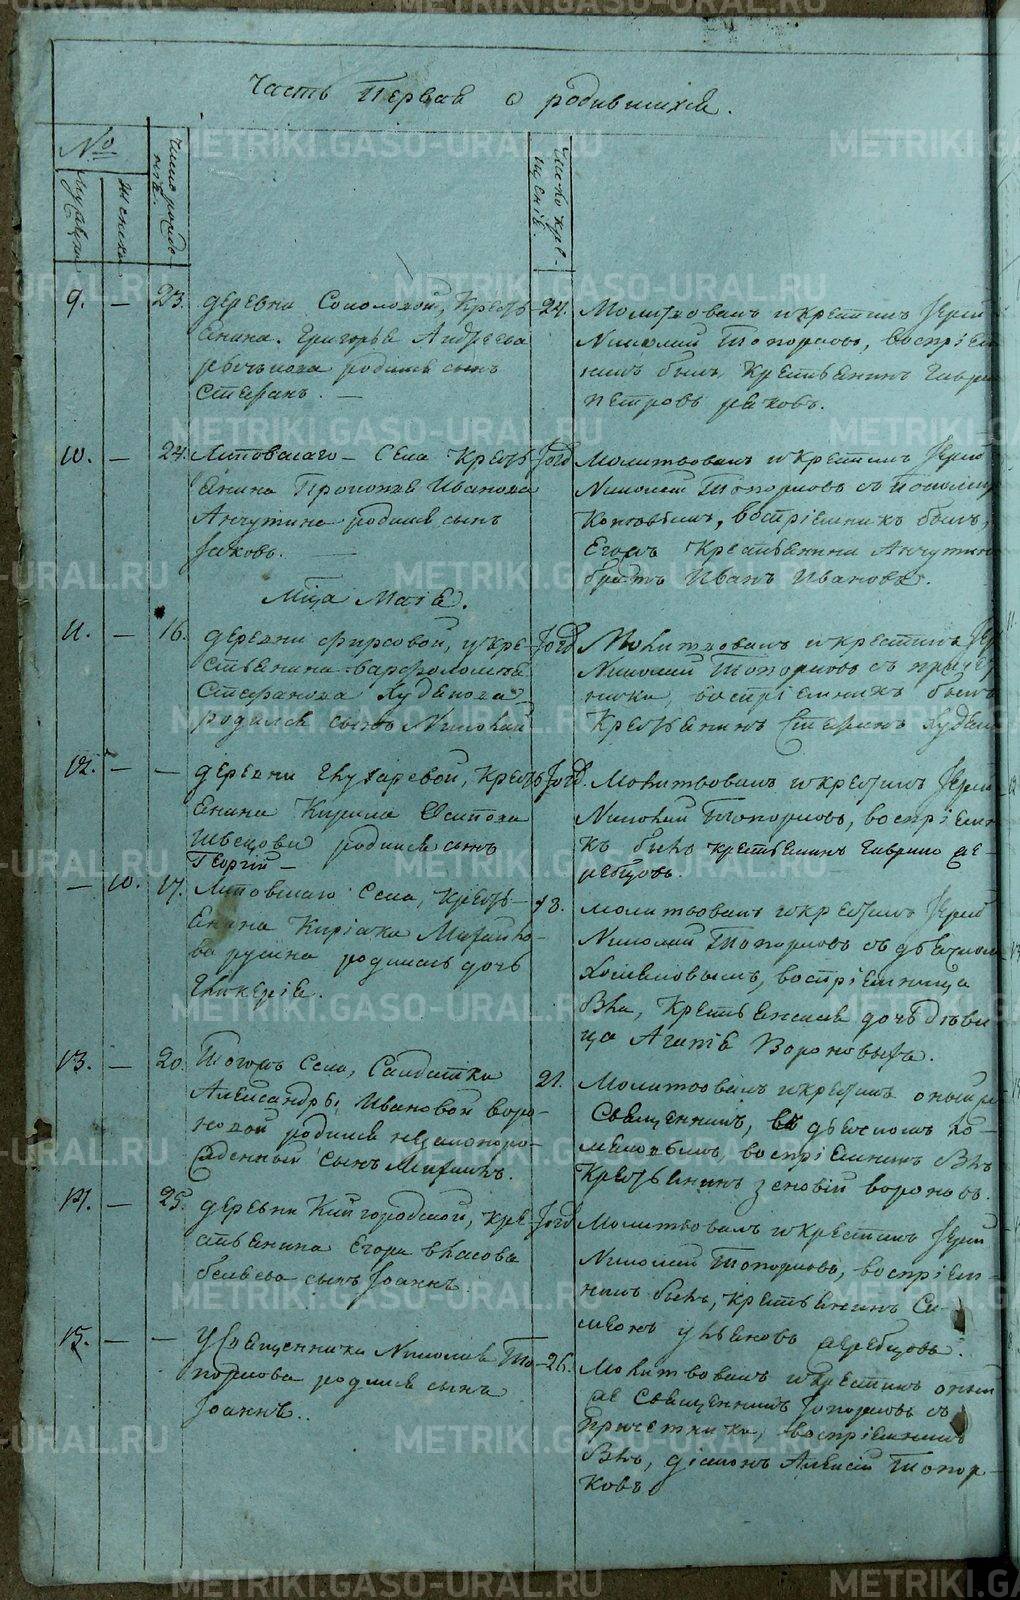 Часть Первая о родившихся.
№
мужска
женска
Число рожде
нія.
Число кре-
щеніе.
9. — 23. деревни Соколовой, Кресть
янина Григорья Андреева
родился сынъ
Стефанъ. —
24. Молитвовалъ и крестилъ Іерей
Николай Топорковъ, воспріем
никъ былъ, Крестьянинъ Гаври
Петровъ
10. — 24. Липовскаго Села Кресть
янина Прокопья Иванова
Анчутина родился сынъ
Іаковъ. —
Молитвовалъ и крестилъ Іерей
Николай Топорковъ съ
воспріемникъ былъ,
Егожъ Крестьянина Анчутина
братъ Иванъ Ивановъ.
Мца Маія.
11. — 16. деревни Фирсовой, кре
стьянина Варфоломея
Стефанова Худякова
родился сынъ Николай
Молитвовалъ и крестилъ Іер
Николай Топорковъ съ приче
тники, воспріемникъ былъ
Крестьянинъ Стефанъ Худяко
12. — — деревни Кресть
янина Кирила Осипова
Швецова родился сынъ
Георгій —
Молитвовалъ и крестилъ Іерей
Николай Топорковъ, воспріемн
къ былъ крестьянинъ Гаврило де-
ребцовъ.
— 10. 17. Липовскаго Села, Кресть-
янина Киріака Михайло-
ва русина родилась дочь
Гликерія.
18. Молитвовалъ и крестилъ Іерей
Николай Топорковъ съ дьячкомъ
воспріемница
бла, Крестьянская дочь дѣви
ца Агапія Вороновыхъ.
13. — 20. Тогожъ Села, Салдатки
Александры Ивановой воро-
новой родился незаконоро-
жденный сынъ Михаилъ.
21. Молитвовалъ и крестилъ оный же
Священникъ, съ дьячкомъ
воспріемникъ блъ
Крестьянинъ Зеновій вороновъ.
14. — 25. деревни Кре
стьянина Егора власова
беляева сынъ Іоаннъ.
Молитвовалъ и крестилъ Іерей
Николай Топорковъ, воспріем-
никъ былъ, крестьянинъ Си-
меонъ деребцовъ.
15. — — У Священника Николая То-
поркова родился сынъ
Іоаннъ..
26. Молитвовалъ и крестилъ оный
же Священникъ Топорковъ съ
Причетники, воспріемникъ
блъ, діаконъ Алексій Топор-
ковъ
METRIKI.GASO-URAL.RU